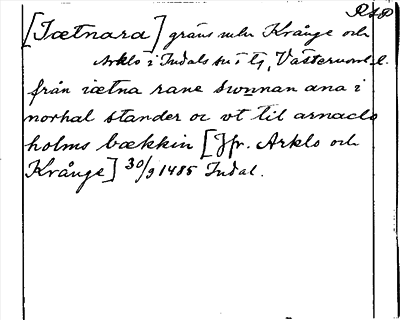 RAP
[Iætnara] gräns mln Krånge och
Arklo i Indals sn i Ɨ, Västernorrl. l.
från iætna rane swnnan ana i
norhal stander oc vt til arnaclo
holms bækkin [Jfr. Arklo och
Krånge] 30/9 1485 Indal.